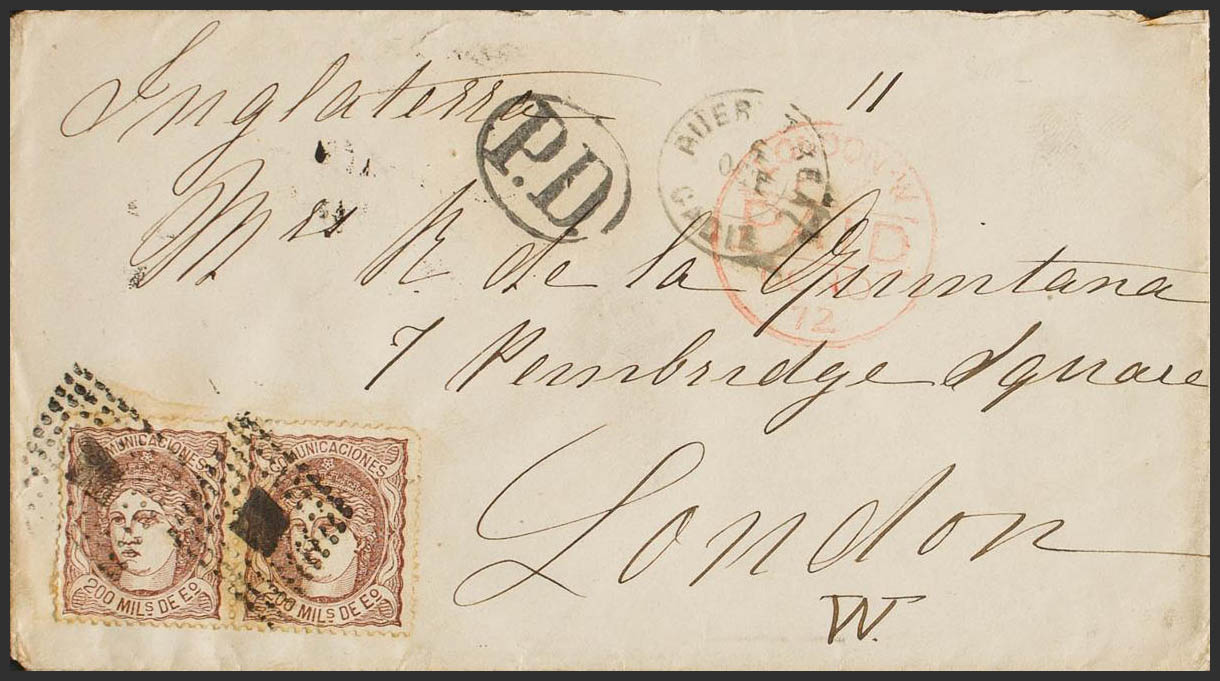 Inglaterra "
P.D.
CADIZ
LONDON·W
PAID
12
Mrs R de la Quintana
7 Pembridge Square
London
W.
COMUNICACIONES
200 MILS DE EO
COMUNICACIONES
200 MILS DE EO